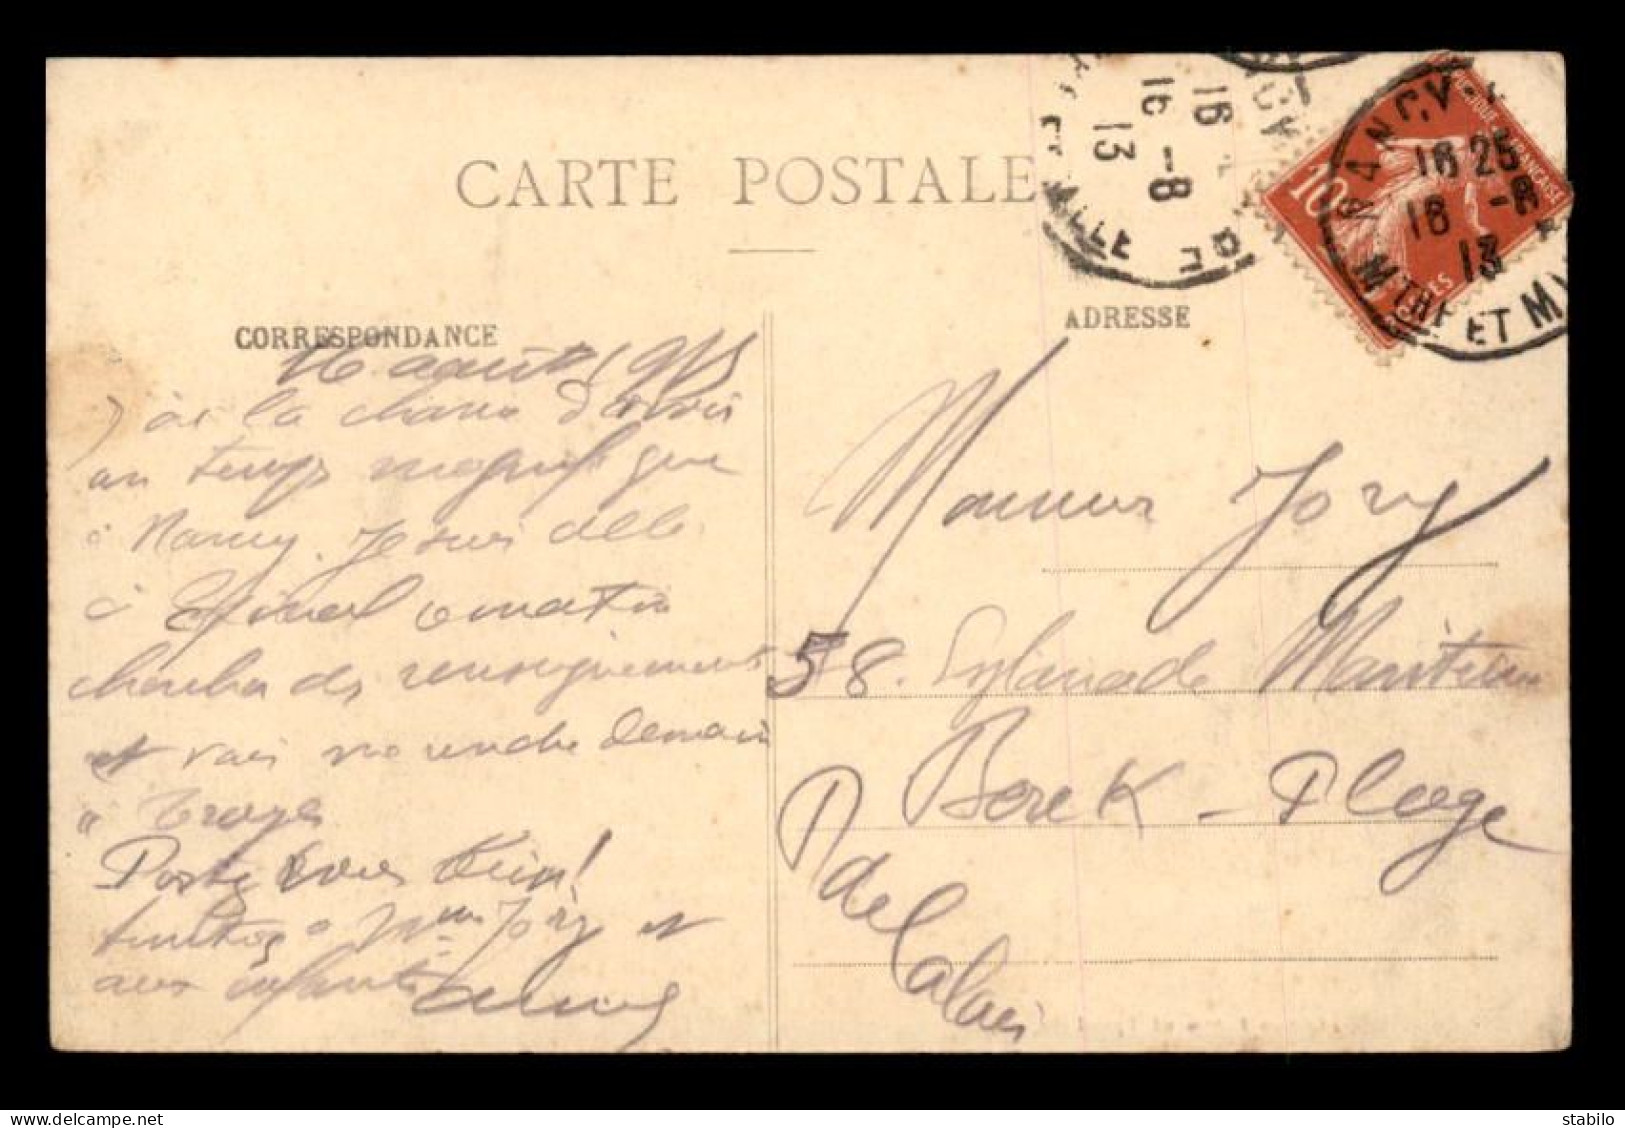 CARTE POSTALE
CORRESPONDANCE
16 août 1913
J'ai la chance d'avoir
un temps magnifique
à Nancy. Je suis allé
à Epinal ce matin
chercher des renseignements
et vais me rendre demain
à Troyes
Portez vous bien!
à Mme Jory et
aux enfants
ADRESSE
Monsieur Jory
58. Esplanade Maritime
Berck-Plage
P de Calais
16
16 -8
13
NANCY
16 25
16 -8
13
MTHE ET M
10
stabilo